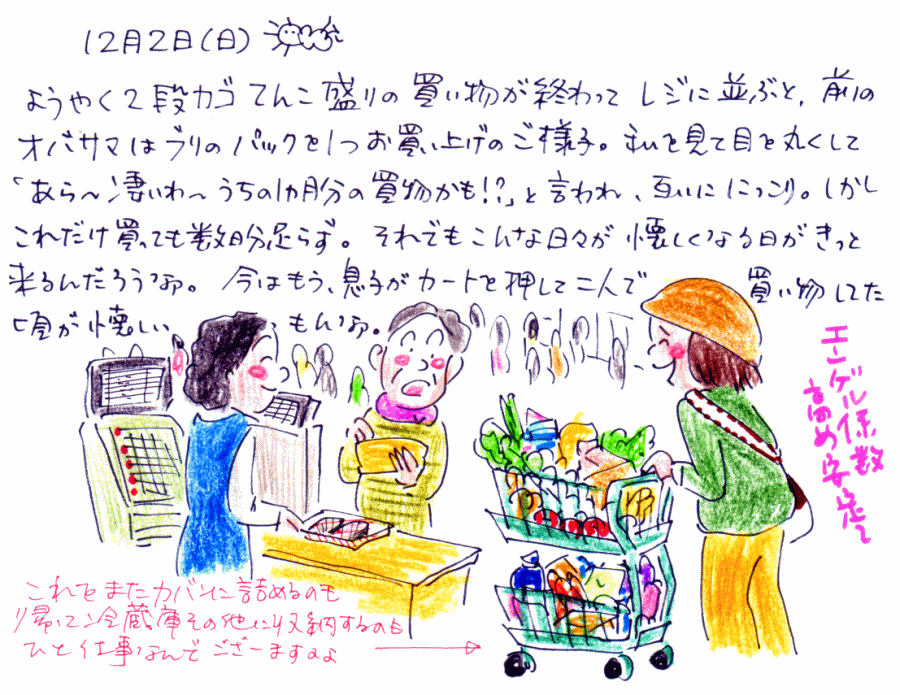 12月2日(日)
ようやく2段カゴてんこ盛りの買い物が終わってレジに並ぶと、前の
オバサマはブリのパックを1つお買い上げのご様子。私を見て目を丸くして
「あら〜凄いわ〜うちの1カ月分の買物かも!?」と言われ、互いににっこり。しかし
これだけ買っても数日分足らず。それでもこんな日々が懐しくなる日がきっと
来るんだろうな。今はもう、息子がカートを押して二人で買い物してた
頃が懐しいもんな。
エンゲル係数
高め安定
これをまたカバンに詰めるのも
帰って冷蔵庫その他に収納するのも
ひと仕事なんでござーますのよ